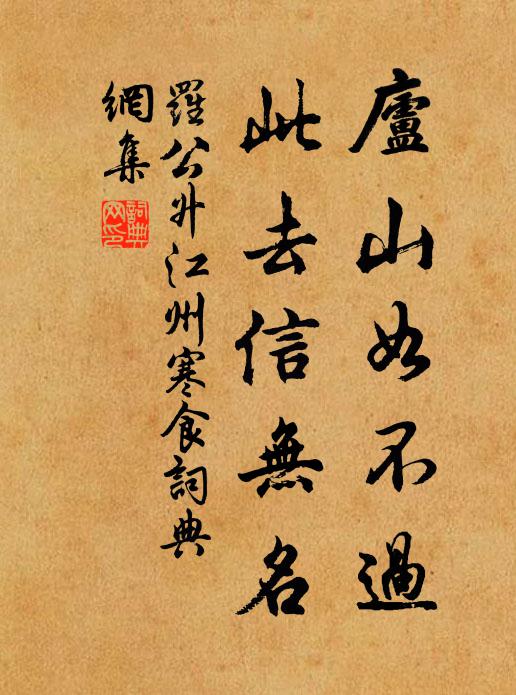 廬山如不過
此去信無名
羅公升江州寒食詞典
網集
詞典
网印